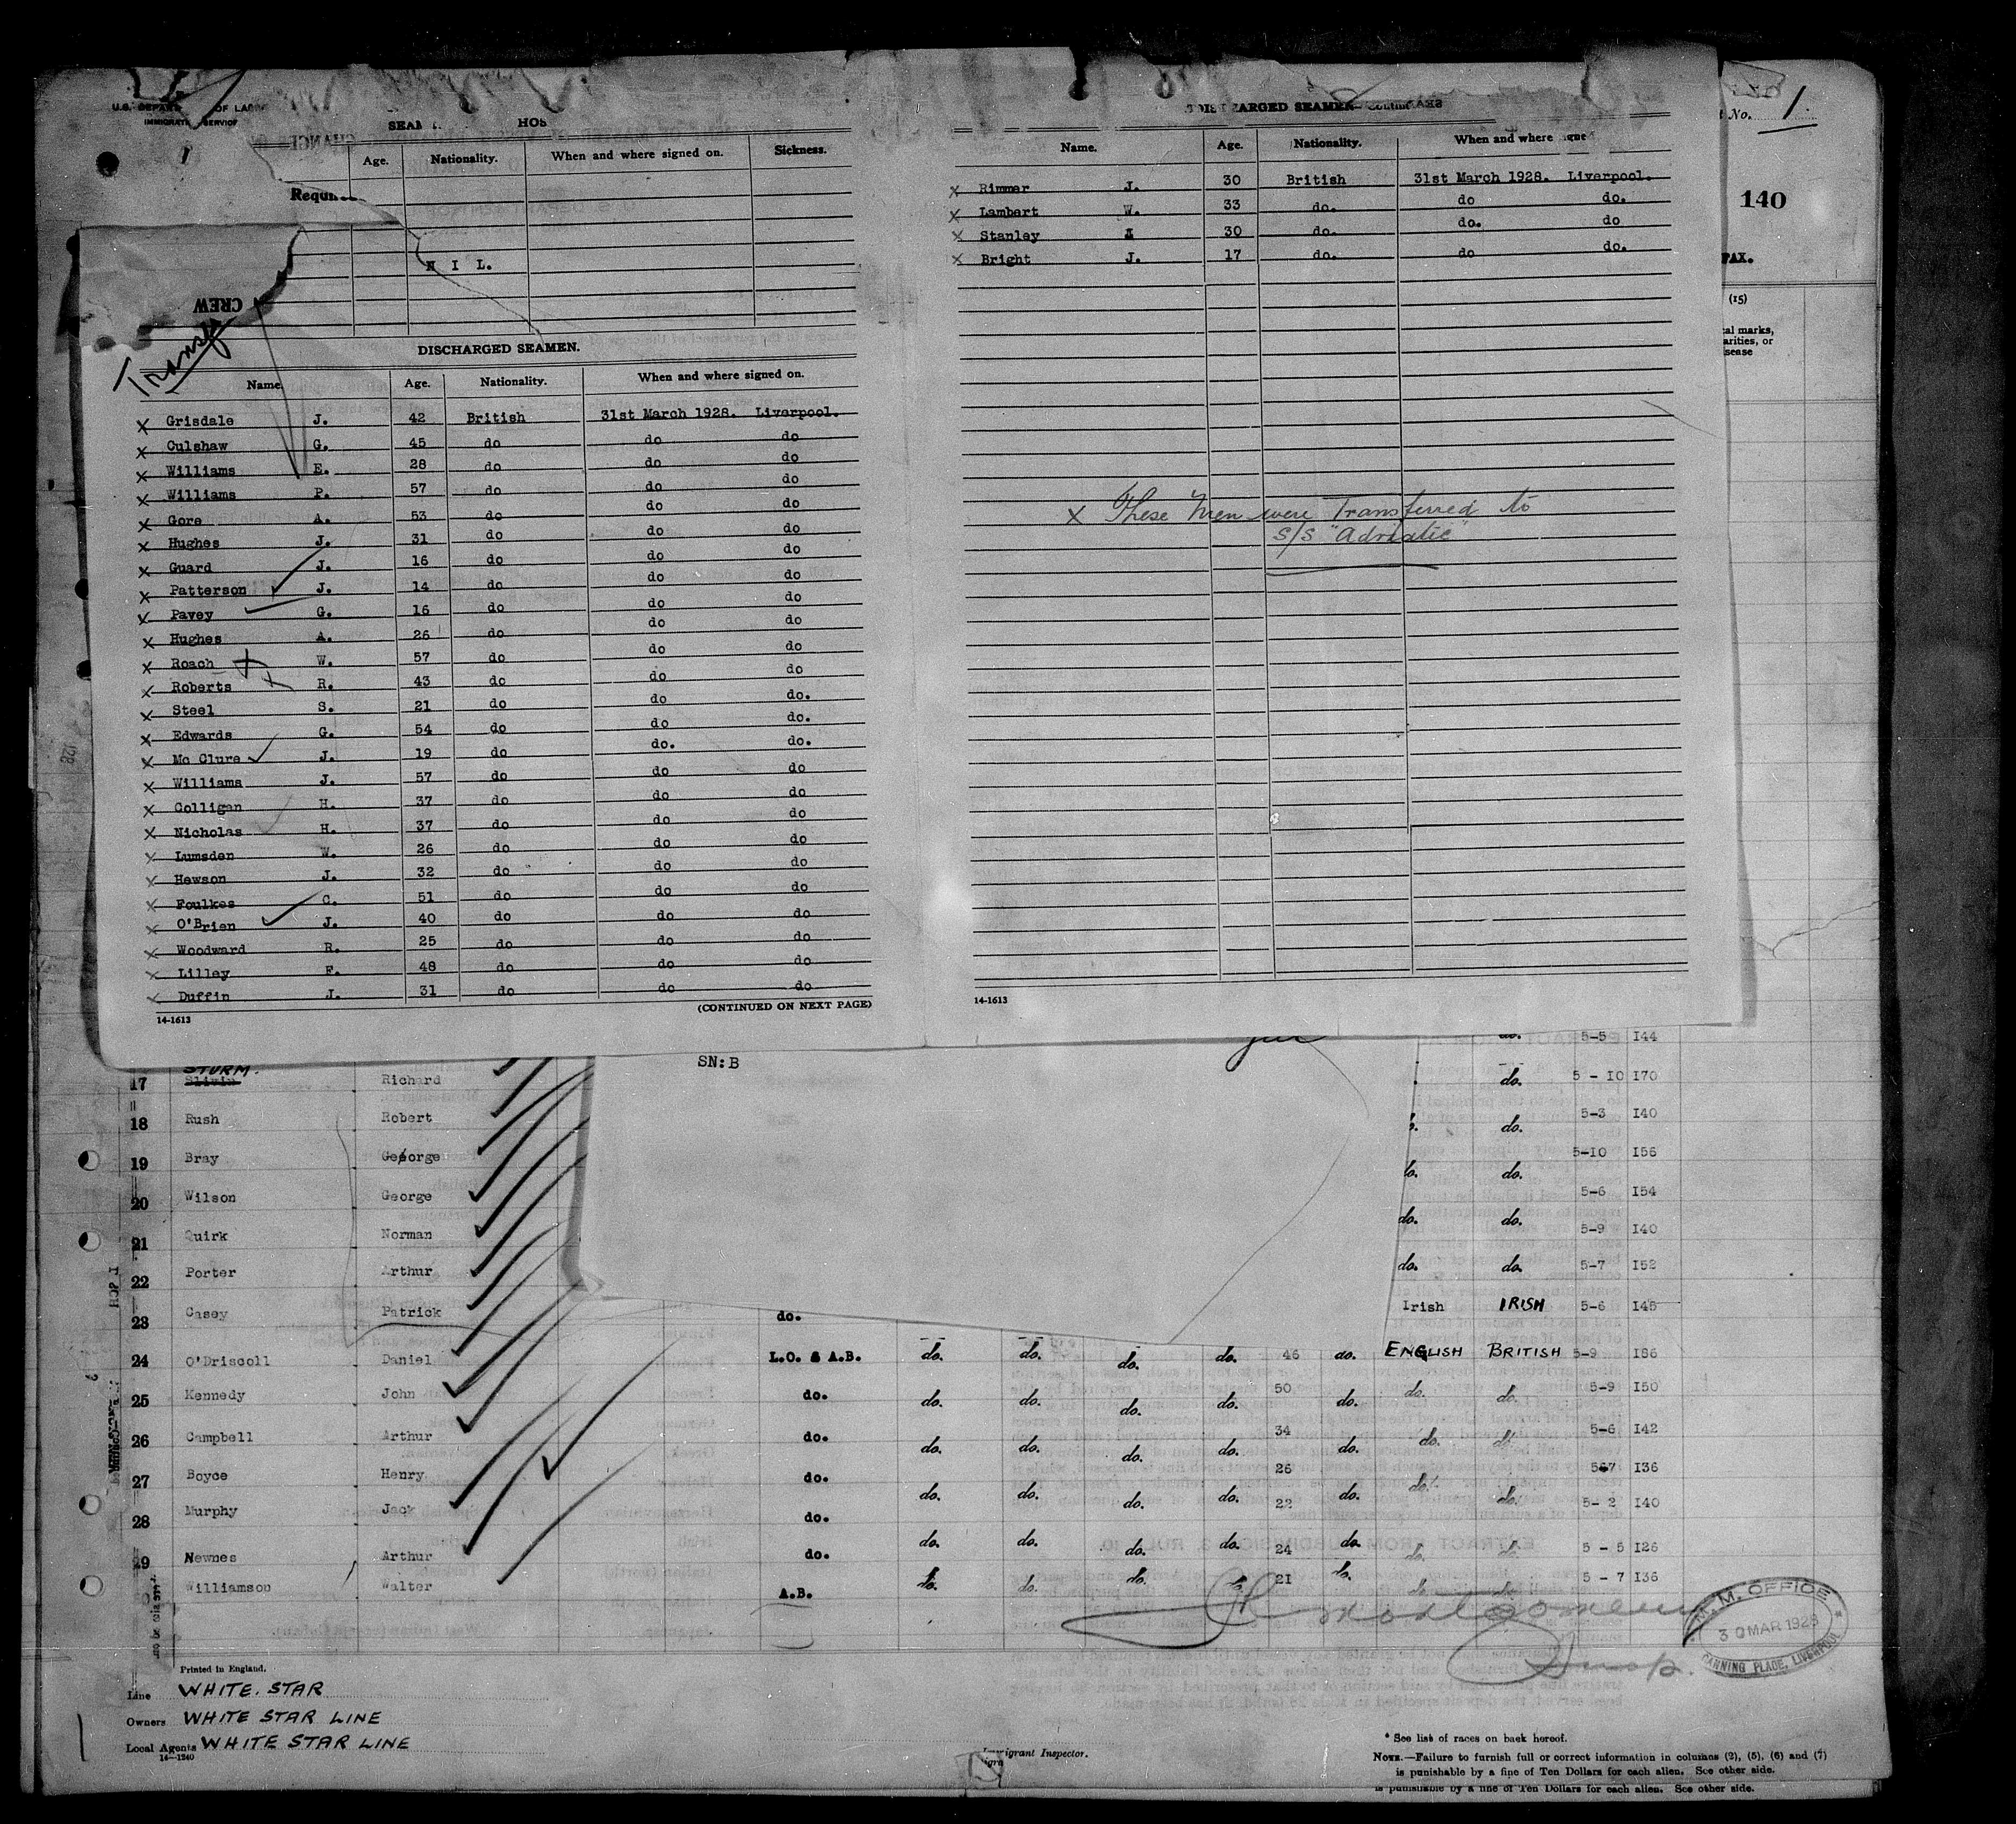 U.S. DEPART OF LABO
IMMIGRAT SERVICE
SEAM HOS
Age. Nationality. When and where signed on. Sickness.
N I L.
CREW
Transf
DISCHARGED SEAMEN.
Name. Age. Nationality. When and where signed on.
x Grisdale J. 42 British 31st March 1928. Liverpool.
x Culshaw G. 45 do do do
x Williams E. 28 do do do
x Williams P. 57 do do do
x Gore A. 53 do do do
x Hughes J. 31 do do do
x Guard J. 16 do do do
x Patterson J. 14 do do do
x Pavey G. 16 do do do
x Hughes A. 26 do do do
x Roach W. 57 do do do
x Roberts R. 43 do do do
x Steel S. 21 do do do.
x Edwards G. 54 do do do.
x Mc Clure J. 19 do do. do.
x Williams J. 57 do do do
x Colligan H. 37 do do do
x Nicholas H. 37 do do do
x Lumsden W. 26 do do do
x Hewson J. 32 do do do
x Foulkes C. 51 do do do
x O'Brien J. 40 do do do
x Woodward R. 25 do do do
x Lilley F. 48 do do do
x Duffin J. 31 do do do
(CONTINUED ON NEXT PAGE)
14-1613
DISCHARGED SEAMEN
Name. Age. Nationality. When and where signe
x Rimmer J. 30 British 31st March 1928. Liverpool.
x Lambert W. 33 do. do do.
x Stanley 30 do. do. do
x Bright J. 17 do. do do.
x These Men were Transferred to
s/s "Adriatic"
14-1613
No. 1
140
FAX.
(15)
cal marks,
arities, or
sease
SN:B
do. 5-5 144
STURM.
17 Slivin Richard do. 5 - 10 170
18 Rush Robert do. 5-3 140
19 Bray George do. do. 5-10 156
20 Wilson George do. do. 5-6 154
21 Quirk Norman do. do. 5-9 140
22 Porter Arthur do. do. 5-7 152
23 Casey Patrick do. Irish IRISH 5-6 145
24 O'Driscoll Daniel L.O. & A.B. do. do. do. do. 46 do. ENGLISH BRITISH 5-9 186
25 Kennedy John do. do. do. do. do. 50 do. do. do. 5-9 150
26 Campbell Arthur do. do. do. do. do. 34 do. do. do. 5-6 142
27 Boyce Henry do. do. do. do. do. 26 do. do. 567 136
28 Murphy Jack do. do. do. do. do. 22 do. do. 5- 2 140
29 Newnes Arthur do. do. do. do. do. 24 do. do. do. 5 - 5 126
Williamson Walter A.B. do. do. do. do. 21 do. do. do. 5 - 7 136
M. M. OFFICE
30 MAR 1928
CANNING PLACE, LIVERPOOL
Printed in England.
Line WHITE. STAR
Owners WHITE STAR LINE
Local Agents WHITE STAR LINE
14-1240
Immigrant Inspector.
* See list of races on back hereof.
NOTE.—Failure to furnish full or correct information in columns (2), (5), (6) and (7)
is punishable by a fine of Ten Dollars for each alien. See other side.
is punishable by a fine of Ten Dollars for each alien. See other side.